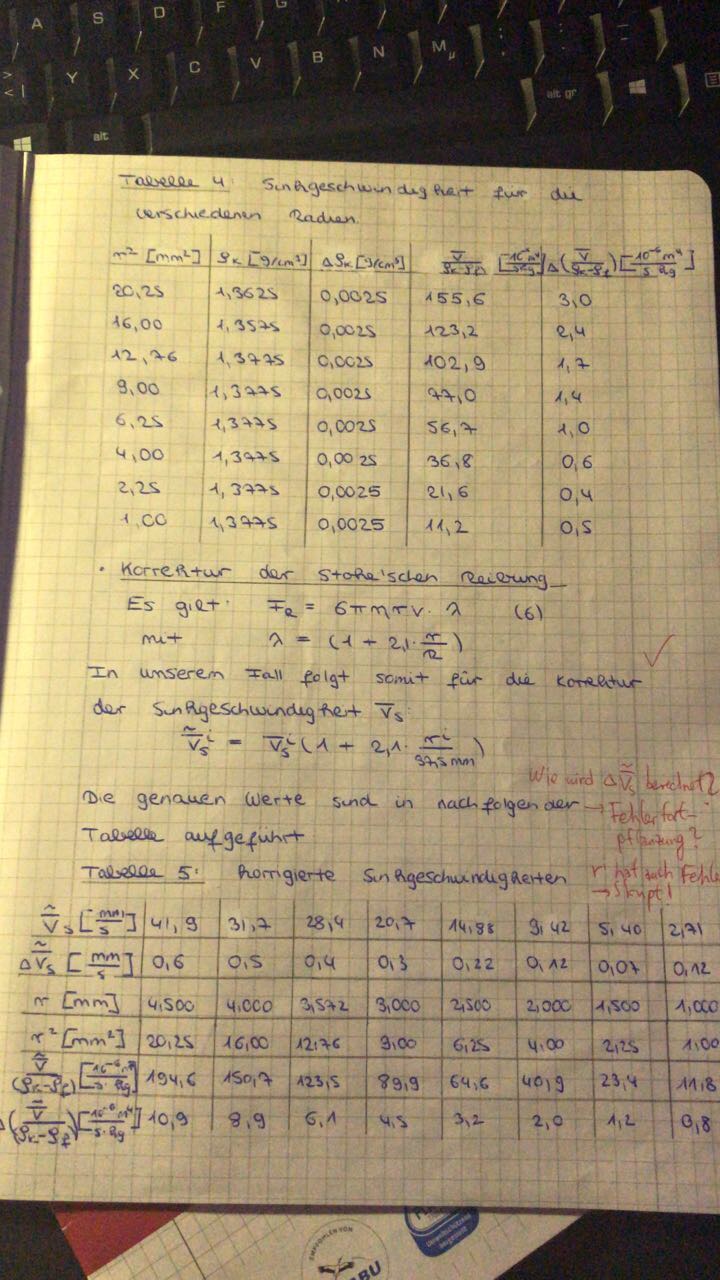 A S D F G H J K
> < | Y X C V B N M µ ; : -
alt alt gr
Tabelle 4: Sinkgeschwindigkeit für die
verschiedenen Radien.
r² [mm²] | ρk [g/cm³] | Δρk [g/cm³] | v̄/(ρk-ρf) [10⁻⁶m⁴/s·kg] | Δ(v̄/(ρk-ρf)) [10⁻⁶m⁴/s·kg]
20,25 | 1,3625 | 0,0025 | 155,6 | 3,0
16,00 | 1,3575 | 0,0025 | 123,2 | 2,4
12,76 | 1,3775 | 0,0025 | 102,9 | 1,7
9,00 | 1,3775 | 0,0025 | 77,0 | 1,4
6,25 | 1,3775 | 0,0025 | 56,7 | 1,0
4,00 | 1,3775 | 0,0025 | 36,8 | 0,6
2,25 | 1,3775 | 0,0025 | 21,6 | 0,4
1,00 | 1,3775 | 0,0025 | 11,2 | 0,5
• Korrektur der Stoke'schen Reibung
Es gilt: F_R = 6πηrv·λ (6)
mit λ = (1 + 2,1·r/R)
In unserem Fall folgt somit für die Korrektur
der Sinkgeschwindigkeit v̄s:
ṽ̄sⁱ = v̄sⁱ(1 + 2,1·rⁱ/37,5mm)
Wie wird Δṽ̄s berechnet?
Die genauen Werte sind in nachfolgender → Fehlerfort-
Tabelle aufgeführt pflanzung?
Tabelle 5: Korrigierte Sinkgeschwindigkeiten r hat auch Fehler
→ Skript!
ṽ̄s [mm/s] | 41,9 | 31,7 | 28,4 | 20,7 | 14,88 | 9,42 | 5,40 | 2,71
Δṽ̄s [mm/s] | 0,6 | 0,5 | 0,4 | 0,3 | 0,22 | 0,12 | 0,07 | 0,12
r [mm] | 4,500 | 4,000 | 3,572 | 3,000 | 2,500 | 2,000 | 1,500 | 1,000
r² [mm²] | 20,25 | 16,00 | 12,76 | 9,00 | 6,25 | 4,00 | 2,25 | 1,00
ṽ̄/(ρk-ρf) [10⁻⁶m⁴/s·kg] | 194,6 | 150,7 | 123,5 | 89,9 | 64,6 | 40,9 | 23,4 | 11,8
Δ(ṽ̄/(ρk-ρf)) [10⁻⁶m⁴/s·kg] | 10,9 | 8,9 | 6,1 | 4,5 | 3,2 | 2,0 | 1,2 | 0,8
EMPFOHLEN VOM